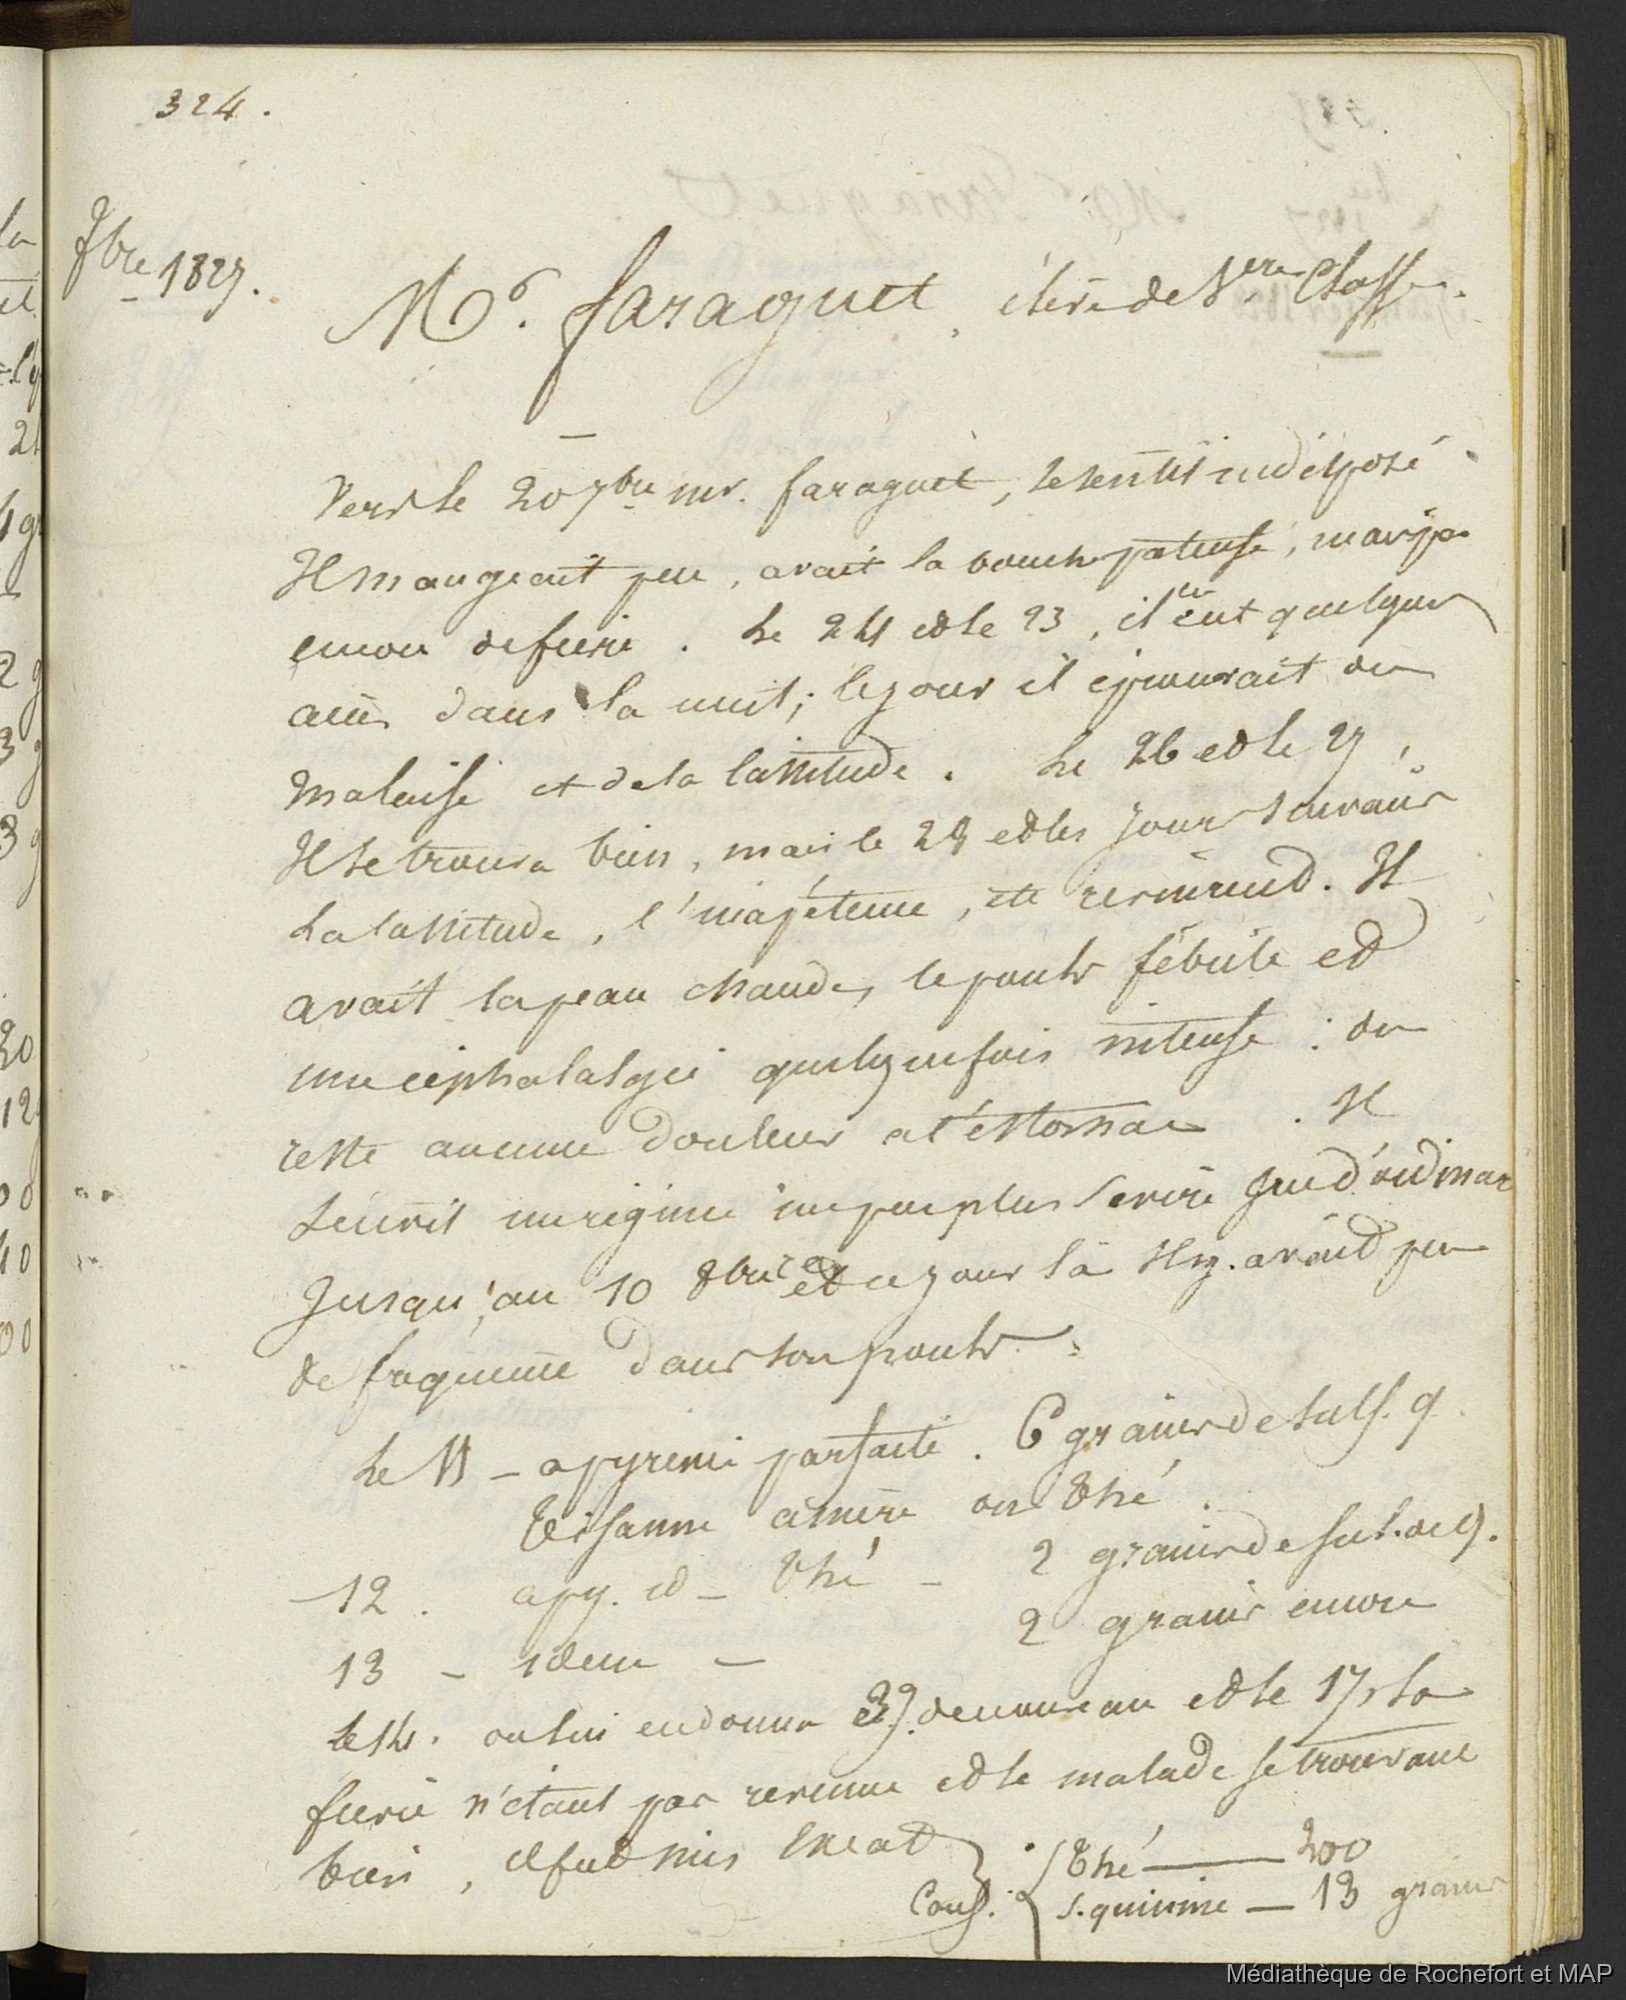 324.
8bre 1827.
Mr. faraguet, élève de 1ere Classe.
Vers le 20 7bre mr. faraguet, se sentit indisposé
Il mangeait peu, avait la bouche pateuse, mais pas
encore de fievre. Le 24 et le 25, il en eut quelques
accès dans la nuit; le jour il éprouvait du
malaise et de la lassitude. Le 26 et le 27,
Il se trouva bien, mais le 28 et les jours suivans
La lassitude, l'inapétence, etc revinrent. Il
avait la peau chaude, le pouls fébrile et
une céphalalgie quelquefois intense: du
reste aucune douleur a l'éstomac. Il
suivit un régime un peu plus sévère que d'ordinaire
Jusqu'au 10 8bre et ce jour là Il y avait peu
de fréquence dans son pouls.
Le 11 – apyrexie parfaite. 6 grains de sulf. q.
Tisanne amère ou Thé.
12. apy. id – Thé – 2 grains de sul. de q.
13 – idem – 2 grains encore
le 14. on lui en donna 3 g. de nouveau et le 17, la
fievre n'étant pas revenue et le malade se trouvant
bien, Il fut mis Exeat
Cons. Thé — 200
s. quinine — 13 grains
Médiathèque de Rochefort et MAP